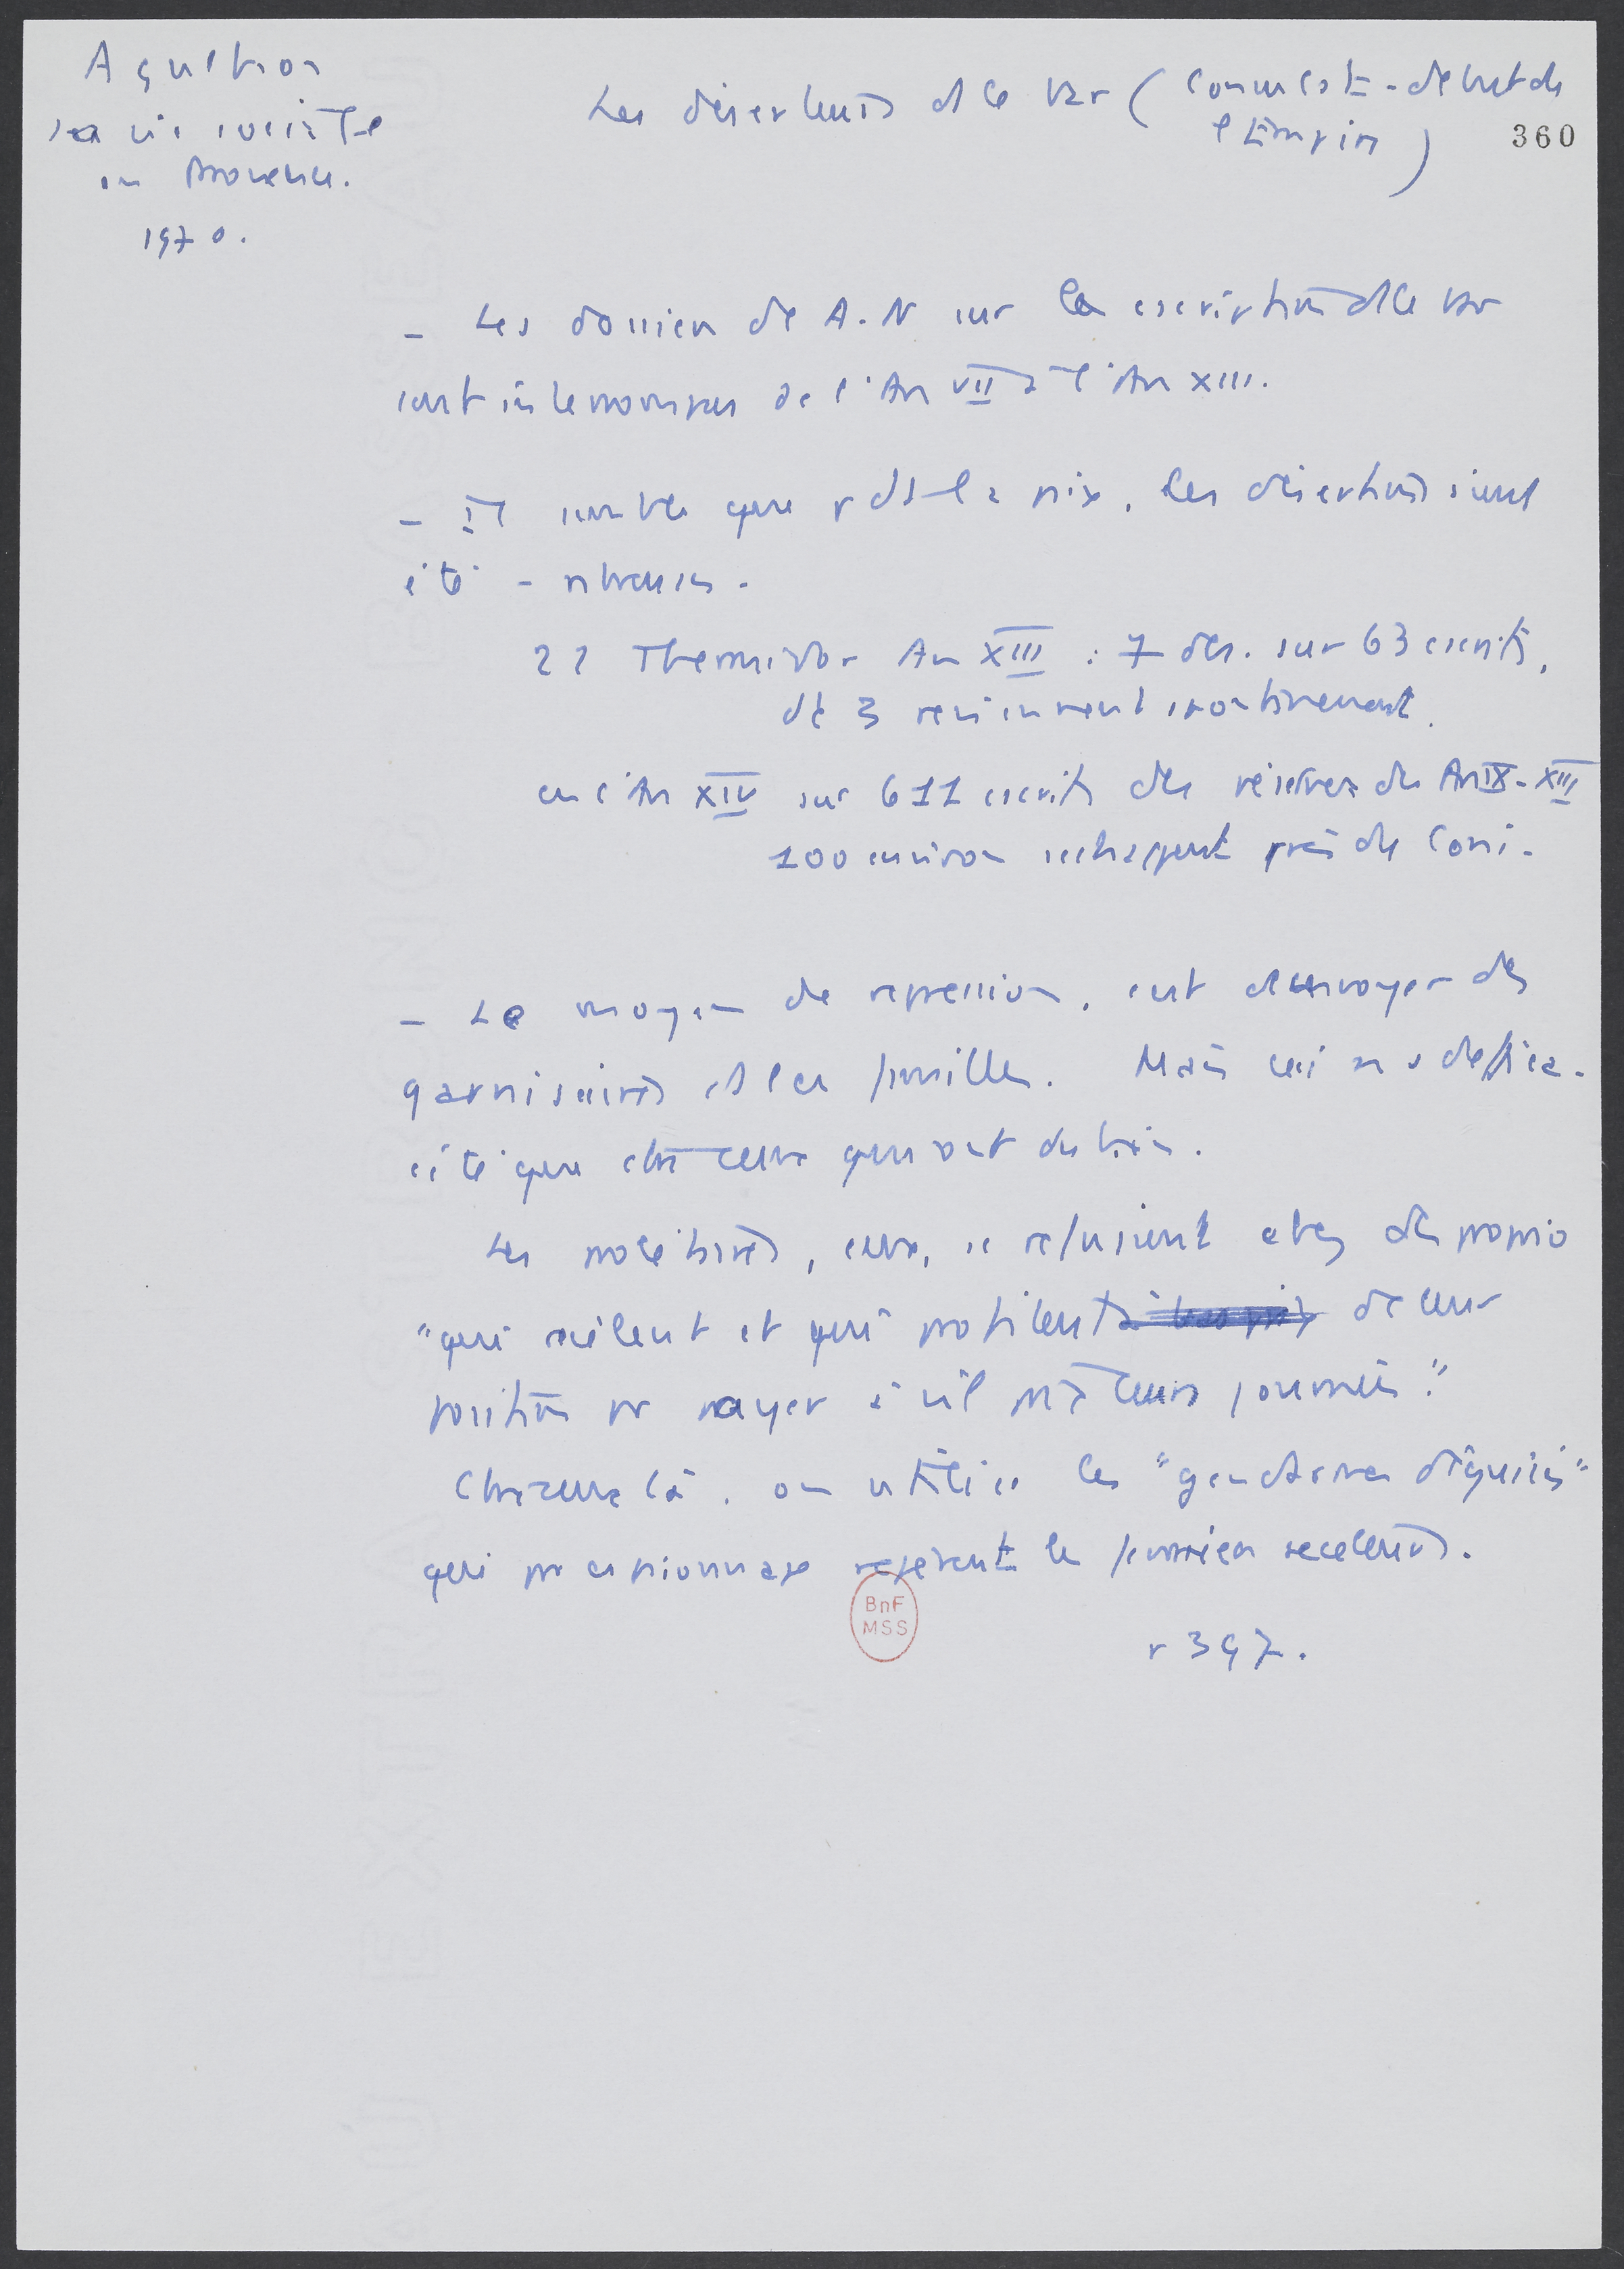 Agulhon
La vie sociale
en Provence.
1970.
Les déserteurs ds le Var (Consulat - début de
l'Empire)
360
- Les dossiers de A.N sur la cscription ds le Var
sont interrompus de l'An VII à l'An XIII.
- Il semble que pdt la paix, les désertions aient
été - nbreuses.
21 Thermidor An XIII : 7 dés. sur 63 cscrits,
dt 3 reviennent spontanément.
en l'An XIV sur 611 cscrits des réserves des An IX-XIII
100 environ s'échappent près de Coni.
- Le moyen de répression, c'est d'envoyer des
garnisaires ds les familles. Mais ceci n'a d'effica-
cité que chez ceux qui ont du bien.
Les prolétaires, eux, se réfugient chez des proprio
"qui recèlent et qui profitent de leur
position pr payer à vil prix leurs journées".
Chez ceux là, on utilise les "gendarmes déguisés"
qui pr espionnage repèrent les fermiers receleurs.
p 397.
BnF
MSS